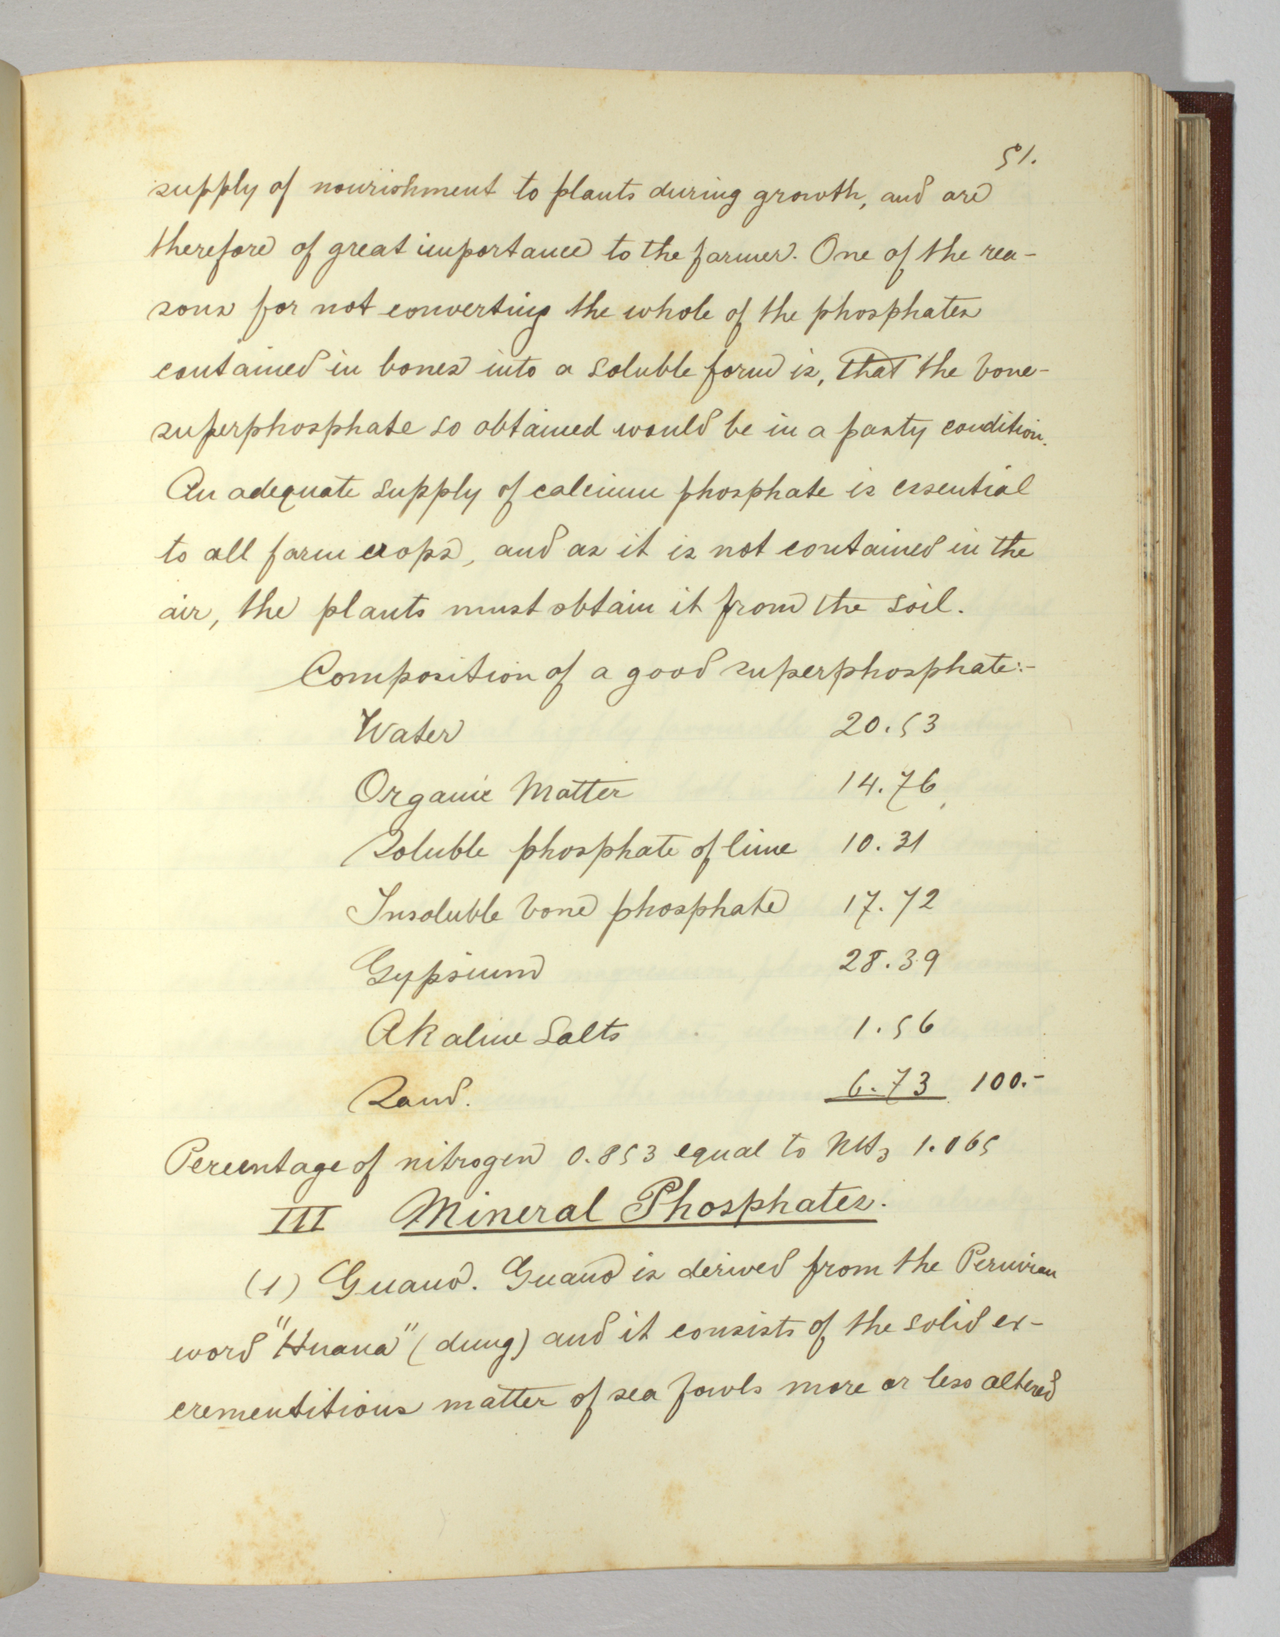 51.
supply of nourishment to plants during growth, and are
therefore of great importance to the farmer. One of the rea-
sons for not converting the whole of the phosphates
contained in bones into a soluble form is, that the bone-
superphosphate so obtained would be in a pasty condition.
An adequate supply of calcium phosphate is essential
to all farm crops, and as it is not contained in the
air, the plants must obtain it from the soil.
Composition of a good superphosphate:-
Water 20.53
Organic Matter 14.76
Soluble phosphate of lime 10.31
Insoluble bone phosphate 17.72
Gypsium 28.39
Akaline Salts 1.56
Sand. 6.73 100.-
Percentage of nitrogen 0.853 equal to NH3 1.065
III Mineral Phosphates.
(1) Guano. Guano is derived from the Peruvian
word "Huana" (dung) and it consists of the solid ex-
crementitious matter of sea fowls more or less altered